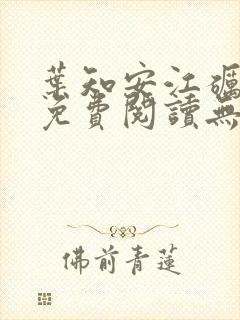 葉知安江礪
免費閱讀無
佛前青蓮